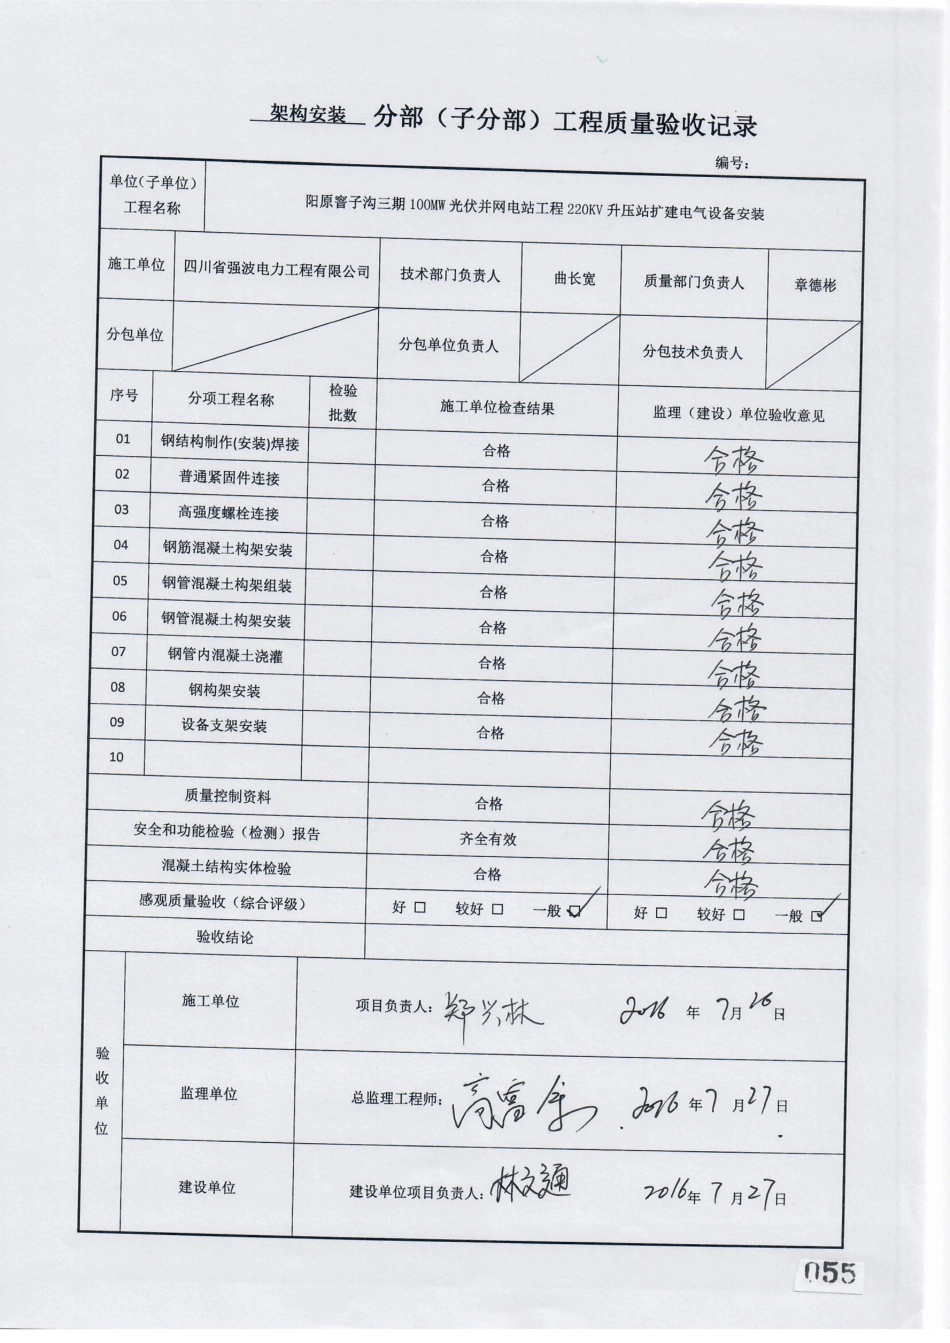 架构安装 分部（子分部）工程质量验收记录
编号：
单位(子单位)
工程名称
阳原窨子沟三期 100MW 光伏并网电站工程 220KV 升压站扩建电气设备安装
施工单位 四川省强波电力工程有限公司 技术部门负责人 曲长宽 质量部门负责人 章德彬
分包单位 分包单位负责人 分包技术负责人
序号 分项工程名称 检验批数 施工单位检查结果 监理（建设）单位验收意见
01 钢结构制作(安装)焊接 合格 合格
02 普通紧固件连接 合格 合格
03 高强度螺栓连接 合格 合格
04 钢筋混凝土构架安装 合格 合格
05 钢管混凝土构架组装 合格 合格
06 钢管混凝土构架安装 合格 合格
07 钢管内混凝土浇灌 合格 合格
08 钢构架安装 合格 合格
09 设备支架安装 合格 合格
10
质量控制资料 合格 合格
安全和功能检验（检测）报告 齐全有效 合格
混凝土结构实体检验 合格 合格
感观质量验收（综合评级） 好 □ 较好 □ 一般 ☑ 好 □ 较好 □ 一般 ☑
验收结论
验收单位
施工单位 项目负责人：郑兴林 2016 年 7月 26日
监理单位 总监理工程师：高富 2016 年 7 月 27日
建设单位 建设单位项目负责人：林文通 2016年 7 月 27日
055